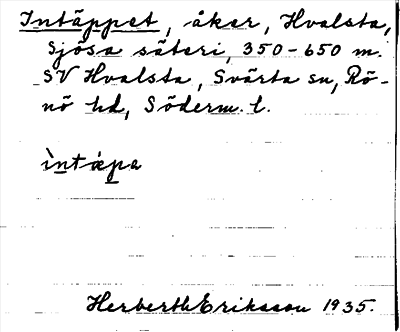 Intäppet, åker, Hvalsta,
Sjösa säteri, 350-650 m.
SV Hvalsta, Svärta sn, Rö-
nö hd, Söderm. l.
ìntápa
Herberth Eriksson 1935.